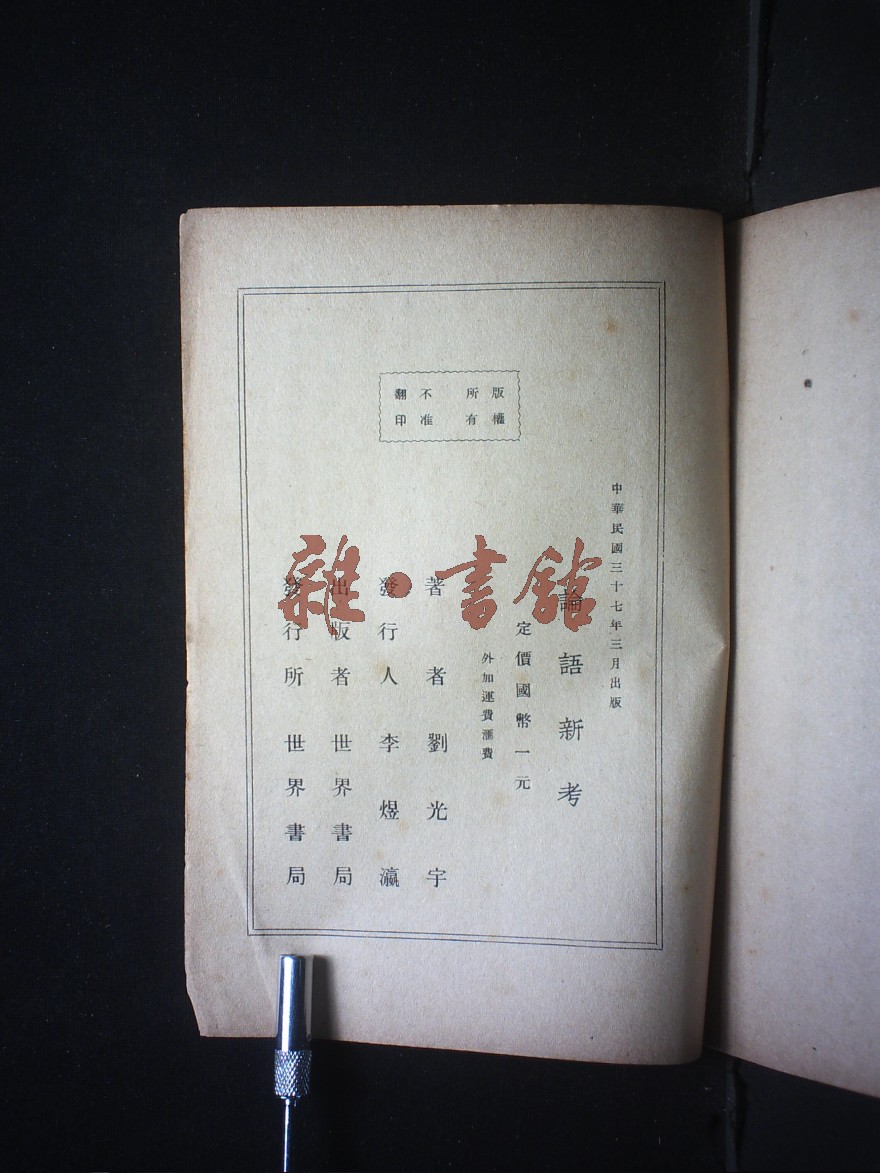 版權
所有
不准
翻印
中華民國三十七年三月出版
論語新考
定價國幣一元
外加運費滙費
著者劉光宇
發行人李煜瀛
出版者世界書局
發行所世界書局
雜·書館